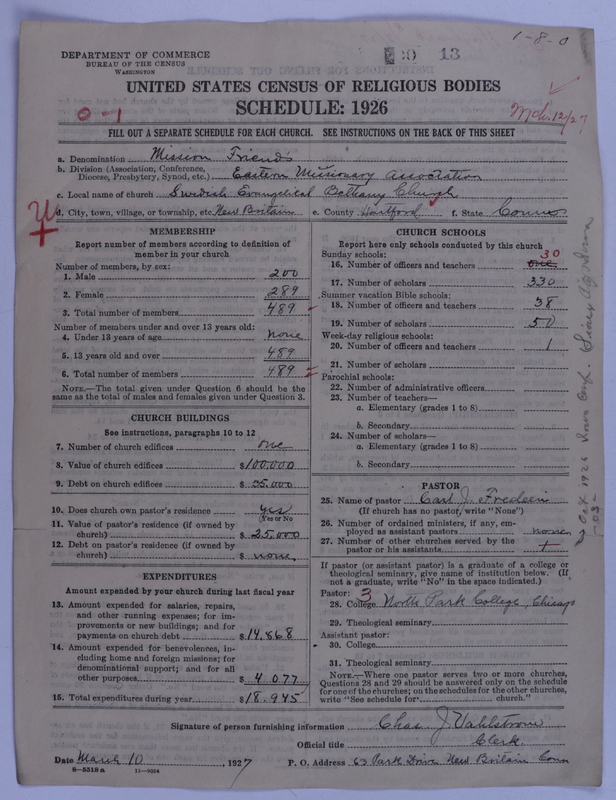 1-8-0
DEPARTMENT OF COMMERCE
BUREAU OF THE CENSUS
WASHINGTON
13
UNITED STATES CENSUS OF RELIGIOUS BODIES
SCHEDULE: 1926
0-1
Mch. 12/27
FILL OUT A SEPARATE SCHEDULE FOR EACH CHURCH. SEE INSTRUCTIONS ON THE BACK OF THIS SHEET
a. Denomination Mission Friends
b. Division (Association, Conference, Diocese, Presbytery, Synod, etc.) Eastern Missionary Association
c. Local name of church Swedish Evangelical Bethany Church
d. City, town, village, or township, etc. New Britain e. County Hartford f. State Conn
MEMBERSHIP
Report number of members according to definition of
member in your church
Number of members, by sex:
1. Male 200
2. Female 289
3. Total number of members 489
Number of members under and over 13 years old:
4. Under 13 years of age none
5. 13 years old and over 489
6. Total number of members 489
NOTE.—The total given under Question 6 should be the
same as the total of males and females given under Question 3.
CHURCH BUILDINGS
See instructions, paragraphs 10 to 12
7. Number of church edifices one
8. Value of church edifices $100,000
9. Debt on church edifices $35,000
10. Does church own pastor's residence yes
(Yes or No
11. Value of pastor's residence (if owned by
church) $25,000
12. Debt on pastor's residence (if owned by
church) $none
EXPENDITURES
Amount expended by your church during last fiscal year
13. Amount expended for salaries, repairs,
and other running expenses; for im-
provements or new buildings; and for
payments on church debt $14,868
14. Amount expended for benevolences, in-
cluding home and foreign missions; for
denominational support; and for all
other purposes $4077
15. Total expenditures during year $18,945
CHURCH SCHOOLS
Report here only schools conducted by this church
Sunday schools: 30
16. Number of officers and teachers one
17. Number of scholars 330
Summer vacation Bible schools:
18. Number of officers and teachers 38
19. Number of scholars 50
Week-day religious schools:
20. Number of officers and teachers 1
21. Number of scholars
Parochial schools:
22. Number of administrative officers
23. Number of teachers—
a. Elementary (grades 1 to 8)
b. Secondary
24. Number of scholars—
a. Elementary (grades 1 to 8)
b. Secondary
PASTOR
25. Name of pastor Carl J.
(If church has no pastor, write "None")
26. Number of ordained ministers, if any, em-
ployed as assistant pastors none
27. Number of other churches served by the
pastor or his assistants
If pastor (or assistant pastor) is a graduate of a college or
theological seminary, give name of institution below. (If
not a graduate, write "No" in the space indicated.)
Pastor: 3
28. College North Park College, Chicago
29. Theological seminary
Assistant pastor:
30. College
31. Theological seminary
NOTE.—Where one pastor serves two or more churches,
Questions 28 and 29 should be answered only on the schedule
for one of the churches; on the schedules for the other churches,
write "See schedule for church."
Signature of person furnishing information Chas J. Vahlstrom
Official title Clerk
Date March 10, 1927 P. O. Address 63 Park Drive New Britain Conn
8-5518 a 11-9024